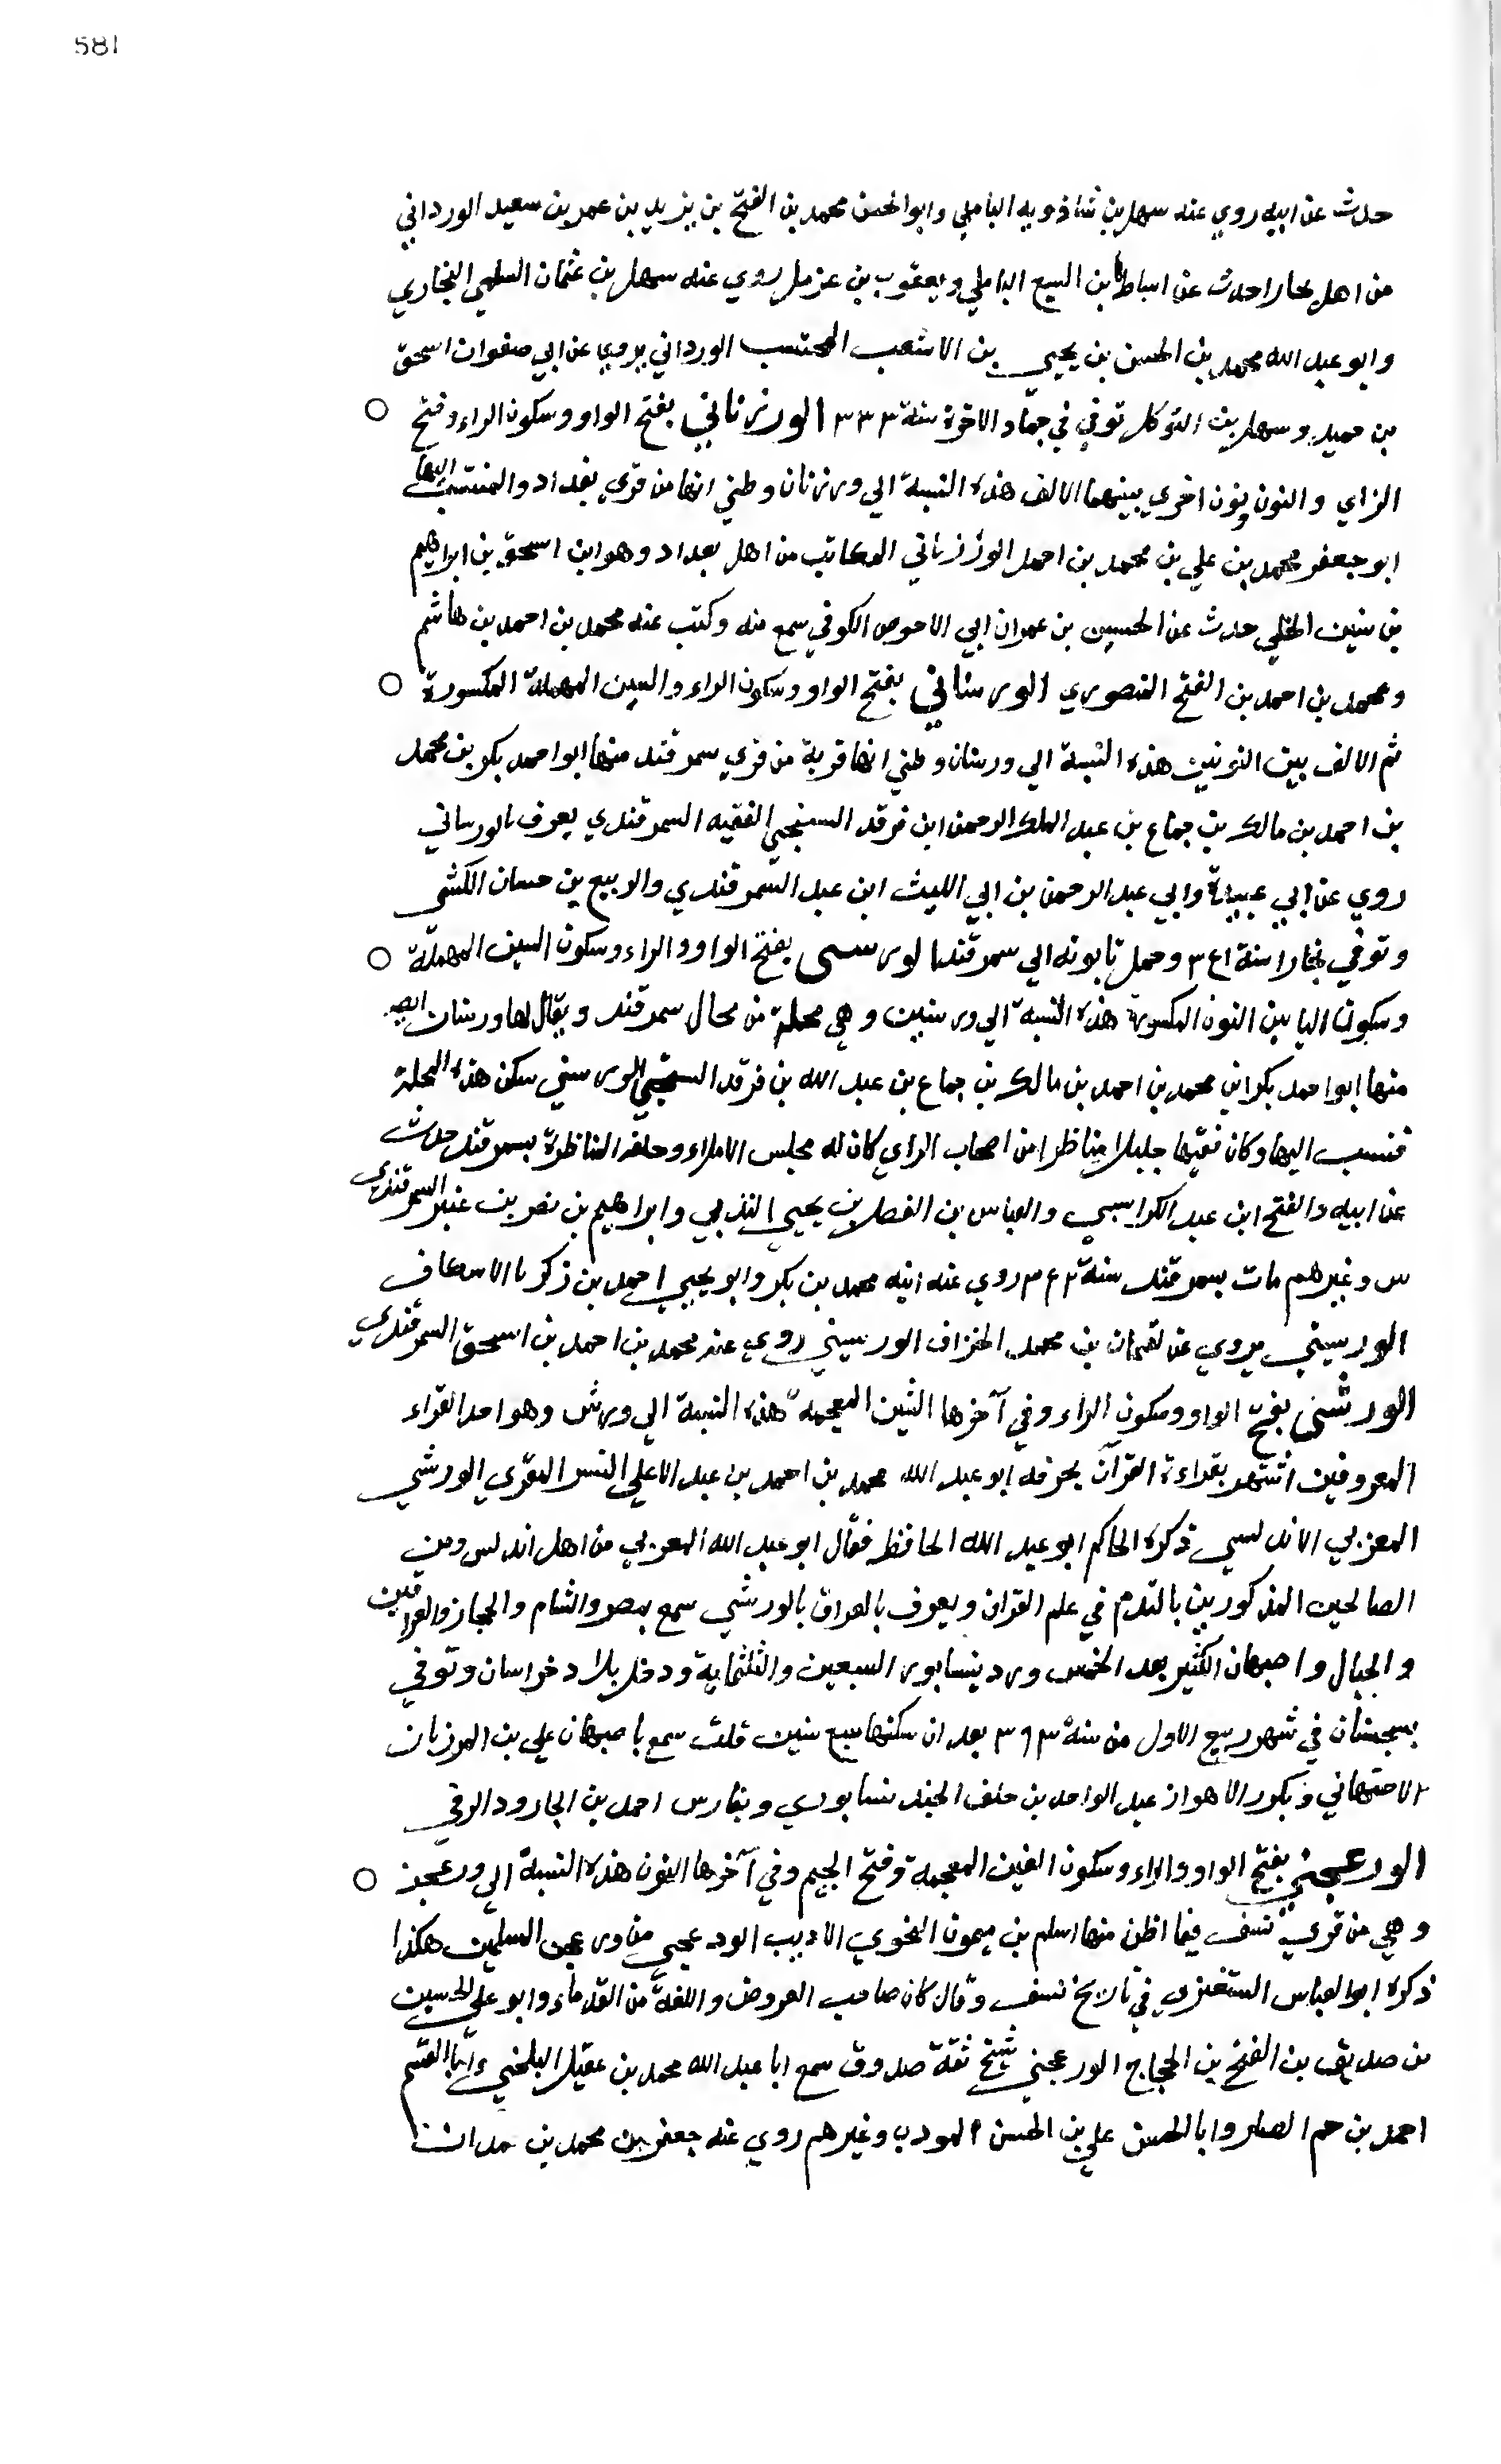 581
حدث عن ابيه روي عنه سهل بن شاذويه الباهلي وابو الحسن محمد بن الفتح بن يزيد بن عمر بن سعيد الورداني
من اهل بخارا حدث عن اسباط ابن اليسع الباهلي ويعقوب بن عزمل روي عنه سهل بن عثمان السلمي البخاري
وابو عبد الله محمد بن الحسن بن يحيي بن الاشعب المحتسب الورداني يروي عن ابي صفوان اسحق
بن حميد وسهل بن التوكل توفي في جماد الاخرة سنة ٣٣٣ الورزناني بفتح الواو وسكون الراء وفتح
الزاي والنون ونون اخري بينهما الالف هذه النسبة الي ورزنان وظني انها من قري بغداد والمنتسب اليها
ابو جعفر محمد بن علي بن محمد بن احمد الورزناني الكاتب من اهل بغداد وهو ابن اسحق بن ابراهيم
بن سنين الختلي حدث عن الحسين بن عمران ابي الاحوص الكوفي سمع منه وكتب عنه محمد بن احمد بن هاشم
ومحمد بن احمد بن الفتح القصوري الورسناني بفتح الواو وسكون الراء والسين المهملة المكسورة
ثم الالف بين النونين هذه النسبة الي ورسنان وظني انها قرية من قري سمرقند منها ابو احمد بكر بن محمد
بن احمد بن مالك بن جماع بن عبد الملك الرحمن ابن فرقد السنجي الفقيه السمرقندي يعرف بالورساني
روي عن ابي عبيدة وابي عبد الرحمن بن ابي الليث ابن عبد السمرقندي والربيع بن حسان الكشي
وتوفي بخارا سنة ٣٤١ وحمل تابوته الي سمرقند الورسسى بفتح الواو والراء وسكون السين المهملة
وسكون اليا بين النون المكسورة هذه النسبة الي ورسنين وهي محلة من محال سمرقند ويقال لها ورسنان ايضا
منها ابو احمد بكر ابن محمد بن احمد بن مالك بن جماع بن عبد الله بن فرقد السنجي الورسني سكن هذه المحلة
فنسب اليها وكان فقيها جليلا مناظرا من اصحاب الراي كان له مجلس الاملاء وحلقه المناظرة بسمرقند حدث
عن ابيه والفتح ابن عبد الكرابيسي والعباس بن الفضل بن يحيي الندبي وابراهيم بن نصر بن عنبر السمرقندي
س وغيرهم مات بسمرقند سنة ٣٤٣ روي عنه ابنه محمد بن بكر وابو يحيي احمد بن زكريا الاسعاف
الورسيني يروي عن لقمان بن محمد الخزاف الورسيني روي عنه محمد بن احمد بن اسحق السمرقندي
الورشى بفتح الواو وسكون الراء وفي آخرها الشين المعجمة هذه النسبة الي ورش وهو احد القراء
المعروفين اشتهر بقراءة القرآن بحرفه ابو عبد الله محمد بن احمد بن عبد الاعلي النسر المقري الورشي
المغربي الاندلسي ذكره الحاكم ابو عبد الله الحافظ فقال ابو عبد الله المغربي من اهل اندلس ومن
الصالحين المذكورين بالتقدم في علم القران ويعرف بالعراق بالورشي سمع بمصر والشام والحجاز والعراقين
والجبال واصبهان الكثير بعد الخمس ورد نيسابور السبعين والثلثماية ودخل بلاد خراسان وتوفي
بسجستان في شهر ربيع الاول من سنة ٣٩٣ بعد ان سكنها سبع سنين قلت سمع باصبهان علي بن المرزبان
الاصبهاني وبكور الاهواز عبد الواحد بن خلف الجند نسابوري وبفارس احمد بن الجارود الرقي
الورغجني بفتح الواو والراء وسكون الغين المعجمة وفتح الجيم وفي آخرها النون هذه النسبة الي ورغجن
وهي من قري نسف فيما اظن منها اسلم بن ميمون النحوي الاديب الورغجي من ورغجن المسلمين هكذا
ذكره ابو العباس المستغفري في تاريخ نسف وقال كان صاحب العروض واللغة من القدماء وابو علي الحسين
بن صديق بن الفتح بن الحجاج الورغجني شيخ ثقة صدوق سمع ابا عبد الله محمد بن عقيل البلخي وابا القسم
احمد بن حم الصفار وابا الحسن علي بن الحسن المودب وغيرهم روي عنه جعفر بن محمد بن حمدان